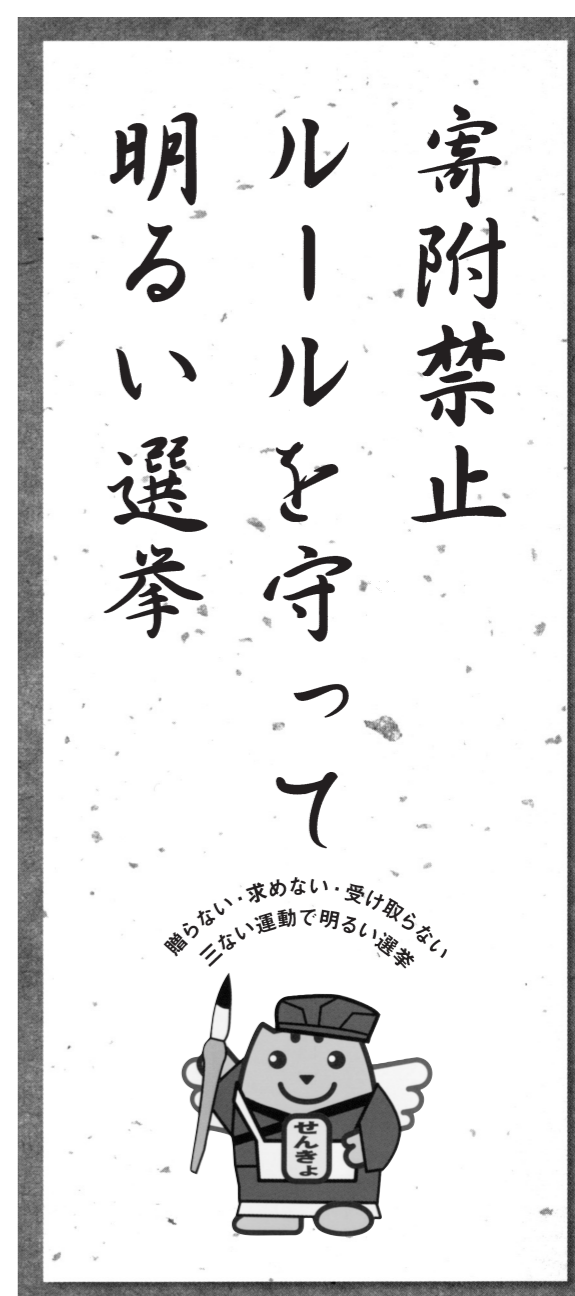 寄附禁止
ルールを守って
明るい選挙
贈らない・求めない・受け取らない
三ない運動で明るい選挙
せんきょ